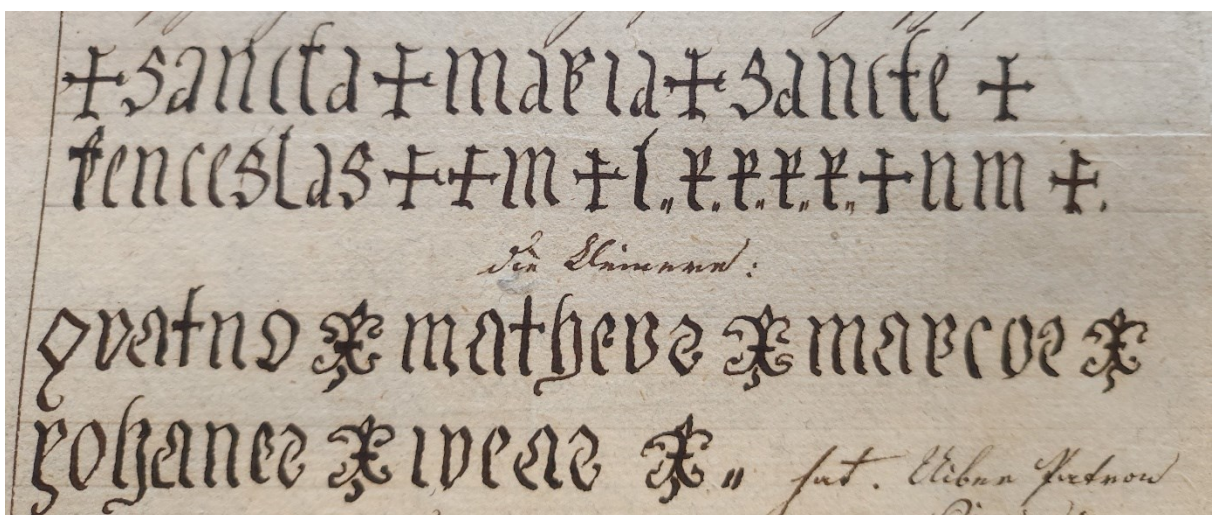 + sancta + maria + sancte +
venceslas + + m + l „ r. r. r. r „ + n m +.
die kleinere:
qvatno ⚜ mathevs ⚜ marcos ⚜
yohanes ⚜ lveas ⚜ „ hat. Uiber Patron